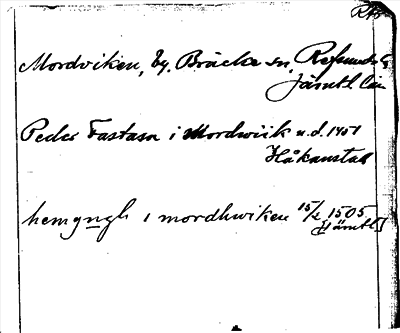 Mordviken, by, Bräcke sn, Refsunds
Jämtl län
Peder Fastason i Mordwiik u.d. 1451
Håkanstad
hemgyngh i mordhwiken 15/2 1505
Jämtl